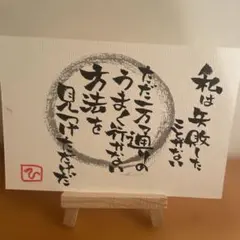 私は失敗した
ことがない
ただ一万通りの
うまく行かない
方法を
見つけただけだ
ひ